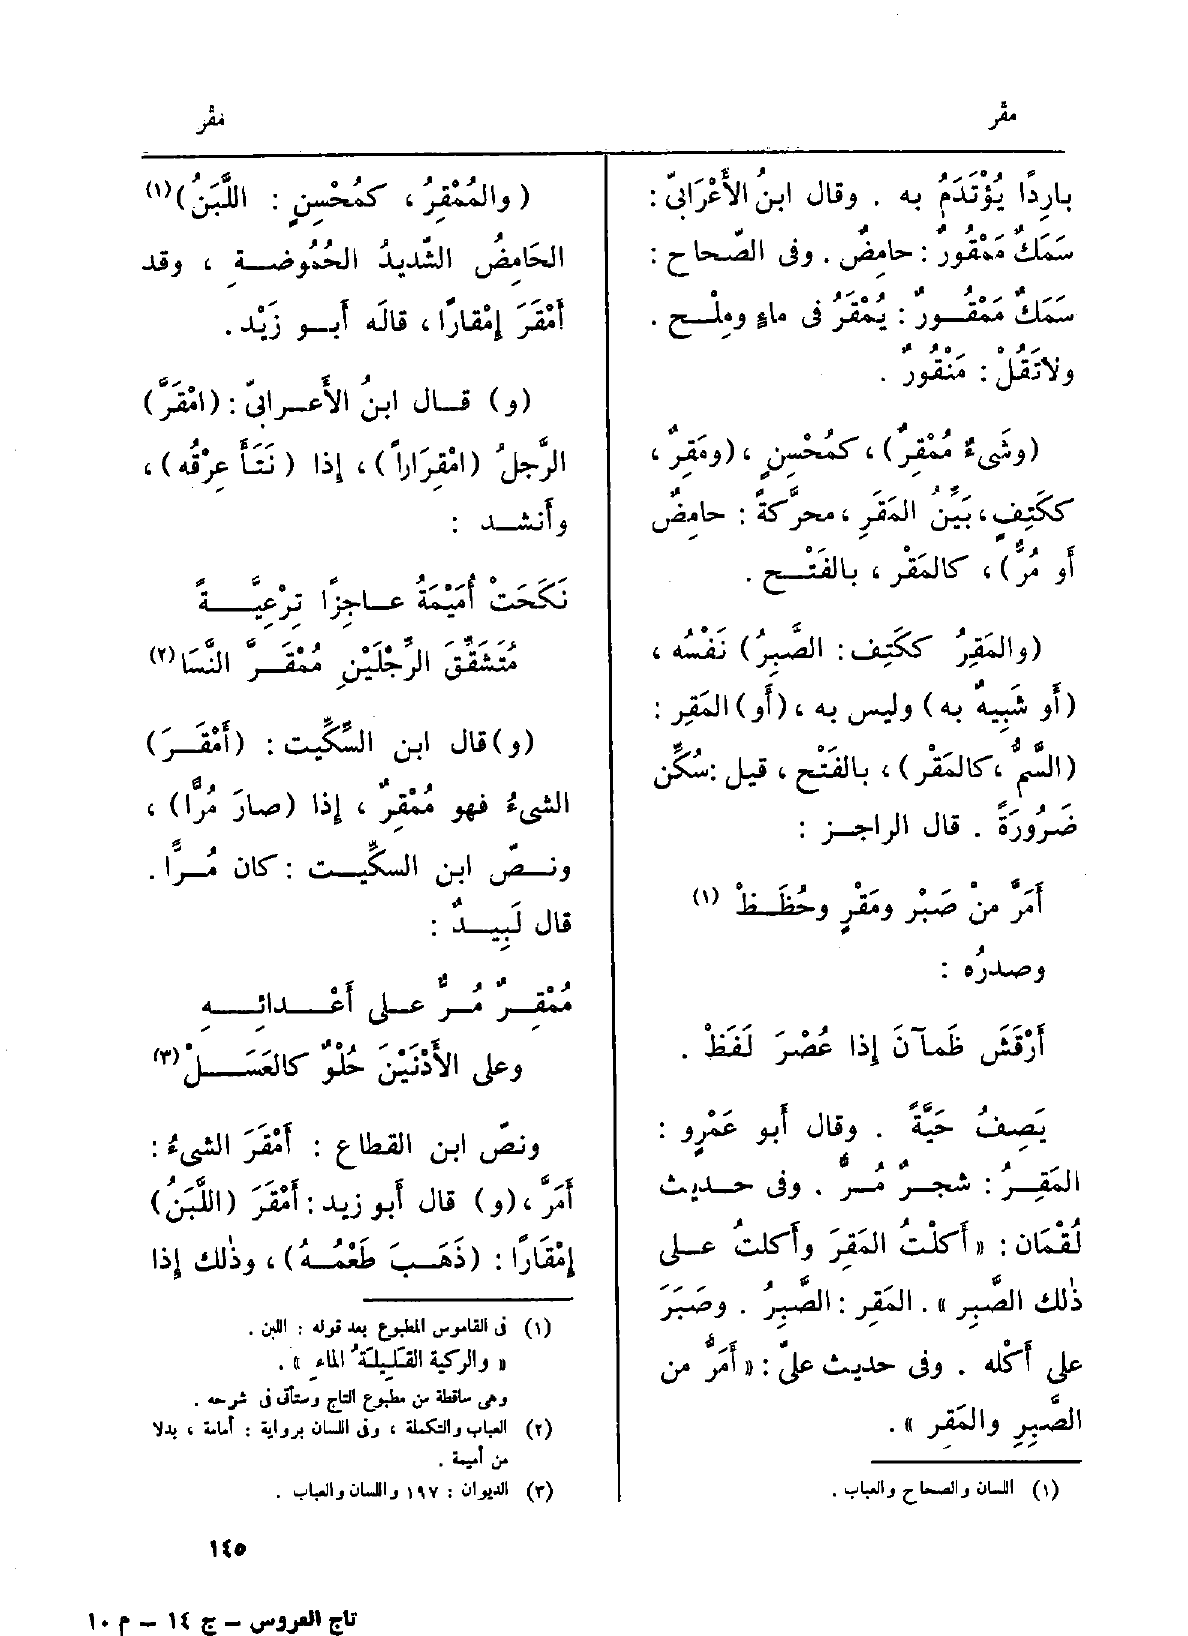 مقر
باردًا يُؤْتَدَمُ به . وقال ابنُ الأَعْرَابىّ :
سَمَكٌ مَمْقُورٌ : حامِضٌ . وفى الصّحاح :
سَمَكٌ مَمْقُورٌ : يُمْقَرُ فى ماءٍ ومِلْح .
ولاتَقُلْ : مَنْقُورٌ .
(وشَىءٌ مُمْقِرٌ) ، كمُحْسِنٍ ، (ومَقِرٌ ،
ككَتِفٍ ، بَيِّنُ المَقَرِ ، محرَّكةً : حامِضٌ
أَو مُرٌّ) ، كالمَقْر ، بالفَتْح .
(والمَقِرُ ككَتِف : الصَّبِرُ) نَفْسُه ،
(أَو شَبِيهٌ به) وليس به ، (أَو) المَقِر :
(السَّمُّ ، كالمَقْر) ، بالفَتْح ، قيل : سُكِّن
ضَرُورَةً . قال الراجز :
أَمَرَّ منْ صَبْر ومَقْرٍ وحُظَظْ (١)
وصدرُه :
أَرْقَشَ ظَمآنَ إِذا عُصْرَ لَفَظْ .
يَصِفُ حَيَّةً . وقال أَبو عَمْرٍو :
المَقِرُ : شجرٌ مُرٌّ . وفى حديث
لُقْمَان : « أَكلْتُ المَقِرَ وأَكلتُ على
ذٰلك الصَّبِر » . المَقِر : الصَّبِرُ . وصَبَرَ
على أَكْله . وفى حديث علىّ : « أَمَرُّ من
الصَّبِرِ والمَقِر » .
(١) اللسان والصحاح والعباب .
مقر
(والمُمْقِرُ ، كمُحْسِنٍ : اللَّبَنُ) (١)
الحَامِضُ الشَّديدُ الحُمُوضةِ ، وقد
أَمْقَرَ إِمْقارًا ، قالَه أَبو زَيْد .
(و) قال ابنُ الأَعرابىّ : (امْقَرَّ)
الرَّجلُ (امْقِرَاراً) ، إِذا (نَتَأَ عِرْقُه) ،
وأَنشد :
نَكَحَتْ أُمَيْمَةُ عاجِزًا تِرْعِيَّةً
مُتَشَقِّقَ الرِّجْلَيْنِ مُمْقَرَّ النَّسَا (٢)
(و) قال ابن السِّكِّيت : (أَمْقَرَ)
الشىءُ فهو مُمْقِرٌ ، إِذا (صارَ مُرًّا) ،
ونصّ ابن السكِّيت : كان مُرًّا .
قال لَبِيدٌ :
مُمْقِرٌ مُرٌّ على أَعْدائِهِ
وعلى الأَدْنَيْنَ حُلْوٌ كالعَسَلْ (٣)
ونصّ ابن القطاع : أَمْقَرَ الشىءُ :
أَمَرَّ ، (و) قال أَبو زيد : أَمْقَرَ (اللَّبَنُ)
إِمْقَارًا : (ذَهَبَ طَعْمُهُ) ، وذٰلك إِذا
(١) فى القاموس المطبوع بعد قوله : اللبن .
« والركية القَلِيلَةُ الماءِ » .
وهى ساقطة من مطبوع التاج وستأتى فى شرحه .
(٢) العباب والتكملة ، وفى اللسان برواية : أمامة ، بدلا
من أميمة .
(٣) الديوان : ١٩٧ واللسان والعباب .
١٤٥
تاج العروس – ج ١٤ – م ١٠